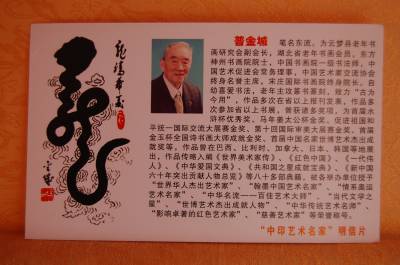 龙
普金城 笔名东流，为云梦县老年书
画研究会副会长，湖北省老年书画会员，东方
神州书画院院士，中国书画院一级书法师，中
国艺术促进会常务理事，中国艺术家交流协会
终身名誉主席，宋庄国际书画院终身院长。自
幼喜爱书法，老年书画班兼职，致力“古为
今用”，作品多次在省以上报刊发表，作品多
次参加省以上书展，曾获诸多奖项，为首届水
浒杯优秀奖，马年垂太公杯金奖，促进祖国和
平统一国际交流大展赛金奖，第十回国际审美大展赛金奖，首届
金玉杯全国诗书画大师成就金奖，首届中国名家世博艺术杰出成
就奖等。作品曾在巴西、比利时、加拿大、日本、韩国等地展
出，作品传略入编《世界美术家传》、《红色中国》、《一代伟
人》、《中华爱国文典》、《共和国之星成就文典》、《新中国
六十年突出贡献人物总览》等八十多部典籍，被各举办单位授予
“世界华人杰出艺术家”、“翰墨中国艺术名家”、“情系奥运
艺术名家”、“中华名流——百佳艺术大师”、“当代文学之
星”、“世博艺术杰出成就人物”、“中华传统艺术大师”、
“影响卓著的红色艺术家”、“慈善艺术家”等荣誉称号。
“中印艺术名家”明信片